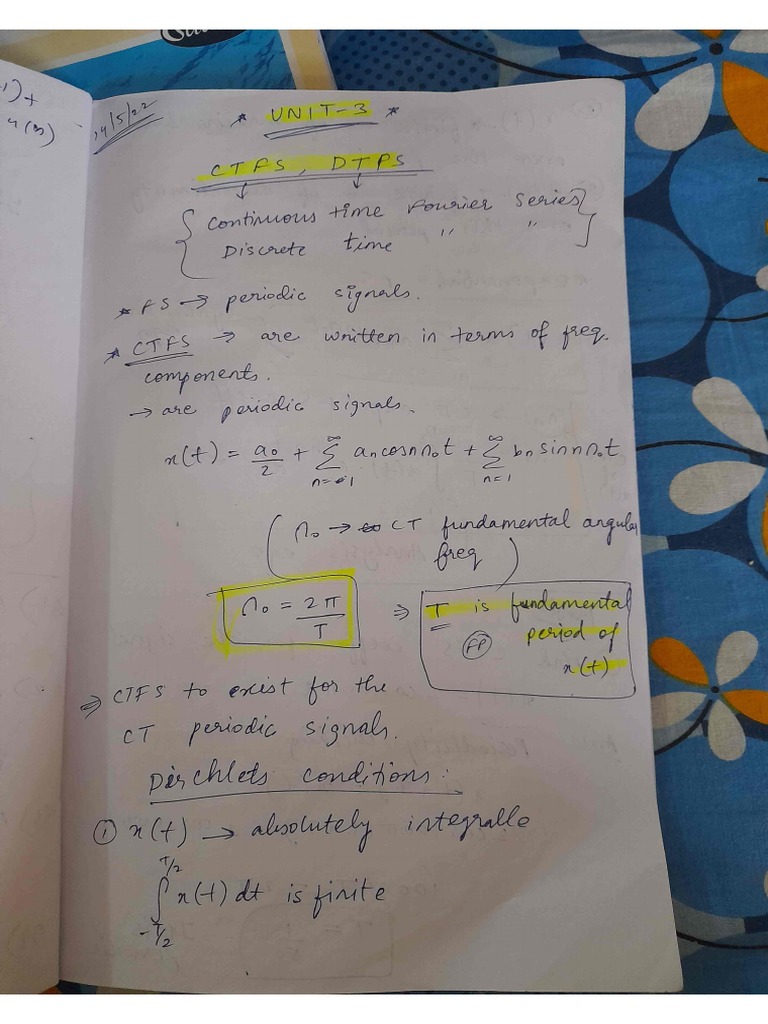 1)+
4(3)
14/5/22
* UNIT-3 *
CTFS, DTFS
{ Continuous time Fourier Series }
{ Discrete time " " }
* FS → periodic signals.
* CTFS → are written in terms of freq.
components.
→ are periodic signals.
x(t) = a₀/2 + ∞ Σ n=1 aₙ cos nΩ₀t + ∞ Σ n=1 bₙ sin nΩ₀t
( Ω₀ → CT fundamental angular
freq )
Ω₀ = 2π/T ⇒ T is fundamental
FP period of
x(t)
⇒ CTFS to exist for the
CT periodic signals.
Dirchlets conditions :
① x(t) → absolutely integralle
T/2 ∫ -T/2 x(t) dt is finite